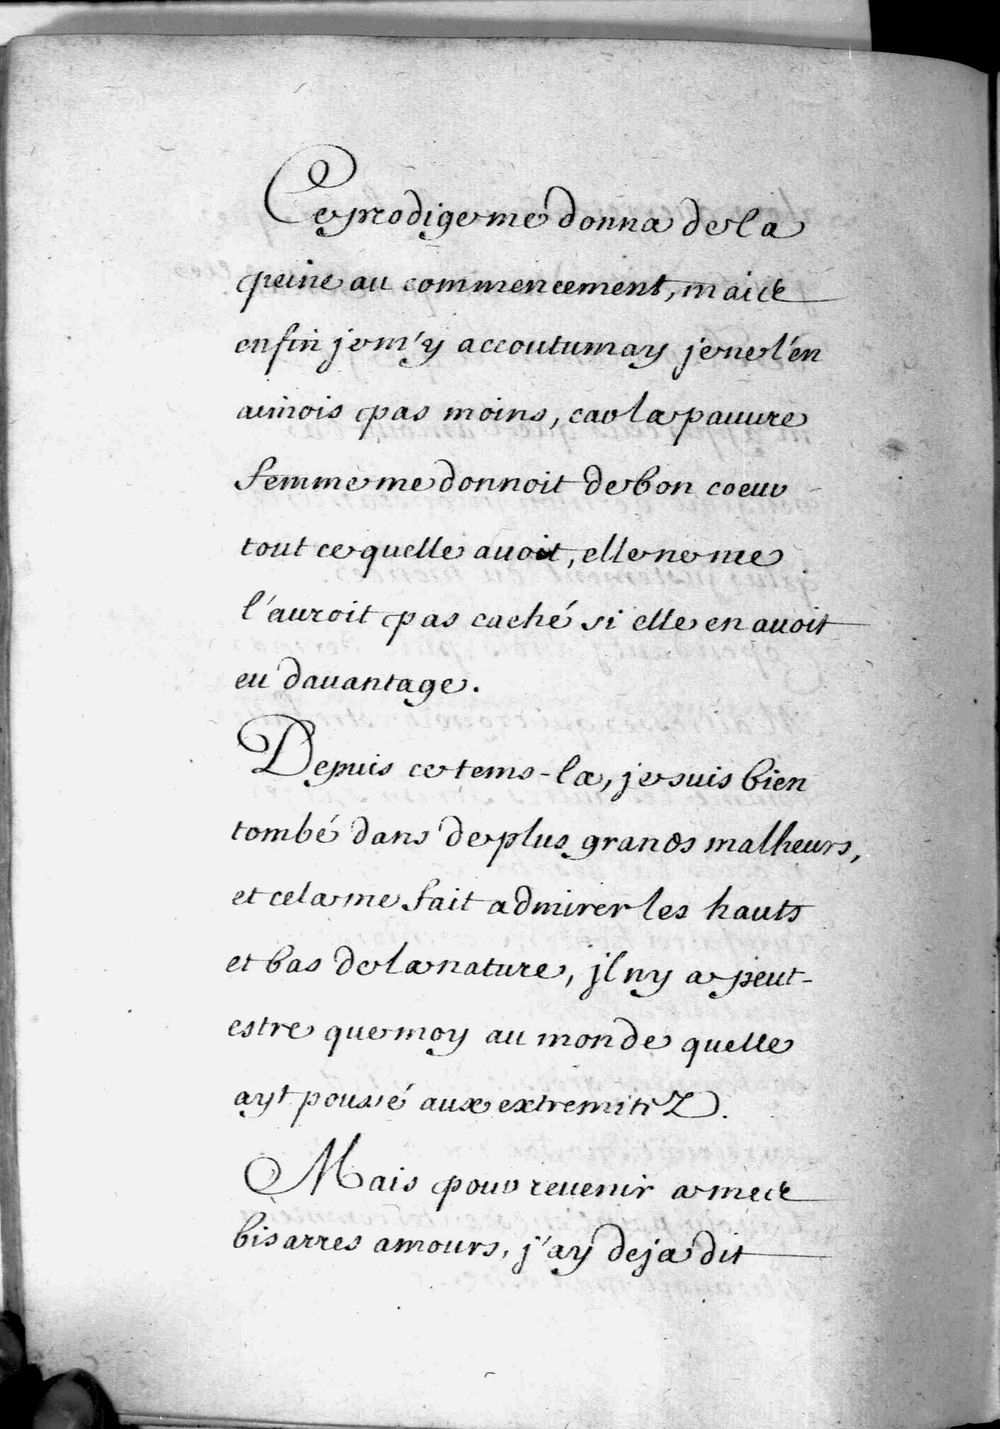 Ce prodige me donna de la
peine au commencement, mais
enfin je m'y accoutumay je ne l'en
aimois pas moins, car la pauure
femme me donnoit de bon coeur
tout ce quelle auoit, elle ne me
l'auroit pas caché si elle en auoit
eu dauantage.
Depuis ce tems-la, je suis bien
tombé dans de plus grands malheurs,
et cela me fait admirer les hauts
et bas de la nature, jl ny a peut-
estre que moy au monde quelle
ayt poussé aux extremitez.
Mais pour reuenir a mes
bisarres amours, j'ay deja dit